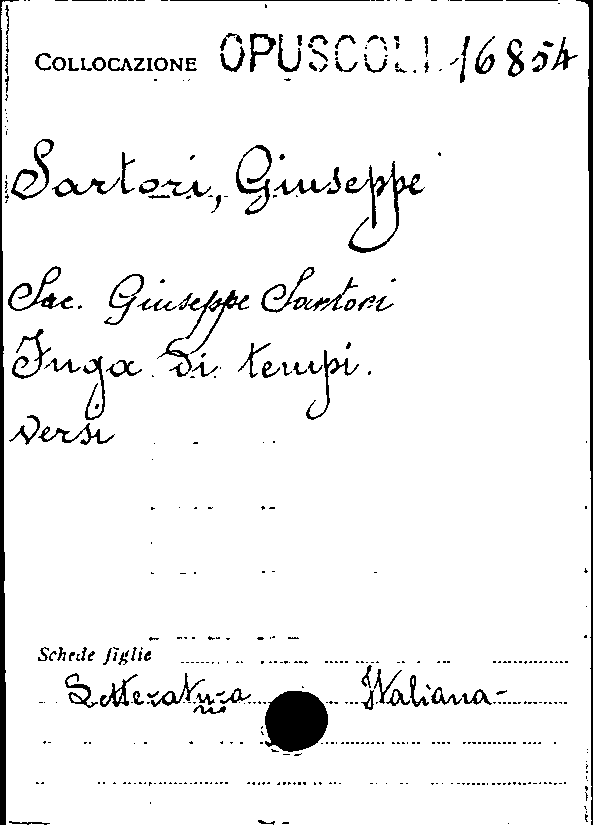 COLLOCAZIONE OPUSCOLI 16854
Sartori, Giuseppe
Sac. Giuseppe Sartori
Fuga di tempi.
versi
Schede figlie
Letteratura Italiana-